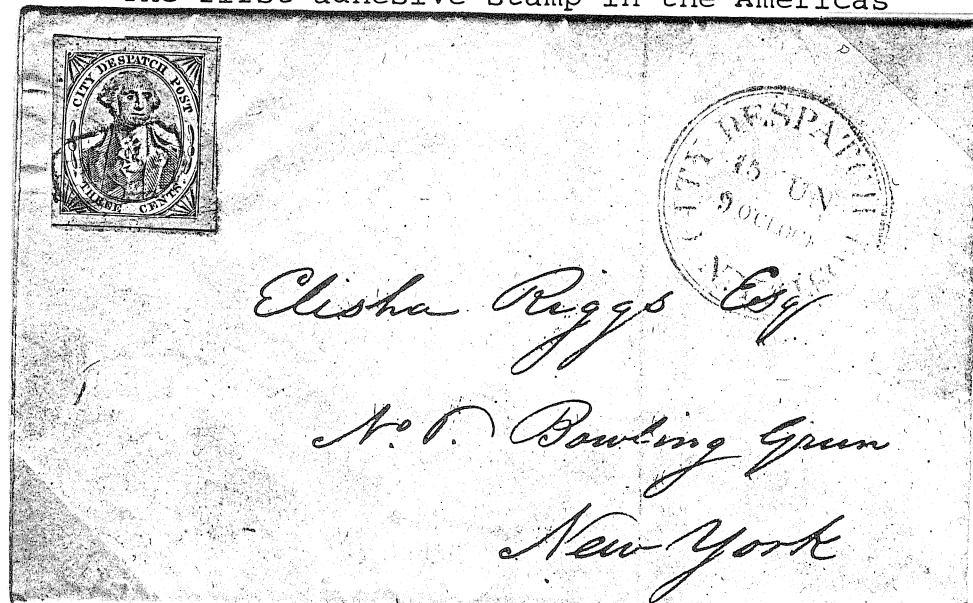 The first adhesive stamp in the Americas
CITY DESPATCH POST
THREE CENTS.
CITY DESPATCH
15 UN
9 OCLOCK
Elisha Riggs Esq
No Bowling Green
New York